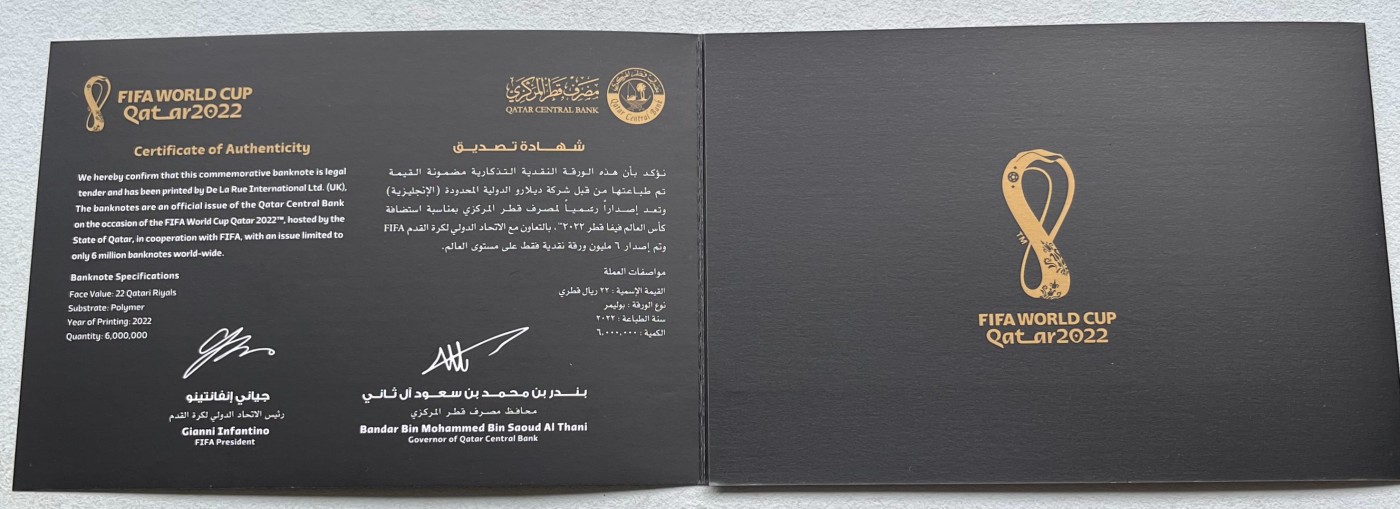 FIFA WORLD CUP
Qatar2022
مصرف قطر المركزي
QATAR CENTRAL BANK
مصرف قطر المركزي
Qatar Central Bank
Certificate of Authenticity
We hereby confirm that this commemorative banknote is legal
tender and has been printed by De La Rue International Ltd. (UK),
The banknotes are an official issue of the Qatar Central Bank
on the occasion of the FIFA World Cup Qatar 2022™, hosted by the
State of Qatar, in cooperation with FIFA, with an issue limited to
only 6 million banknotes world-wide.
Banknote Specifications
Face Value: 22 Qatari Riyals
Substrate: Polymer
Year of Printing: 2022
Quantity: 6,000,000
شهادة تصديق
نؤكد بأن هذه الورقة النقدية التذكارية مضمونة القيمة
تم طباعتها من قبل شركة ديلارو الدولية المحدودة (الإنجليزية)
وتعد إصداراً رسمياً لمصرف قطر المركزي بمناسبة استضافة
كأس العالم فيفا قطر ٢٠٢٢™، بالتعاون مع الاتحاد الدولي لكرة القدم FIFA
وتم إصدار ٦ مليون ورقة نقدية فقط على مستوى العالم.
مواصفات العملة
القيمة الإسمية : ٢٢ ريال قطري
نوع الورقة : بوليمر
سنة الطباعة : ٢٠٢٢
الكمية : ٦,٠٠٠,٠٠٠
جياني إنفانتينو
رئيس الاتحاد الدولي لكرة القدم
Gianni Infantino
FIFA President
بندر بن محمد بن سعود آل ثاني
محافظ مصرف قطر المركزي
Bandar Bin Mohammed Bin Saoud Al Thani
Governor of Qatar Central Bank
TM
FIFA WORLD CUP
Qatar2022